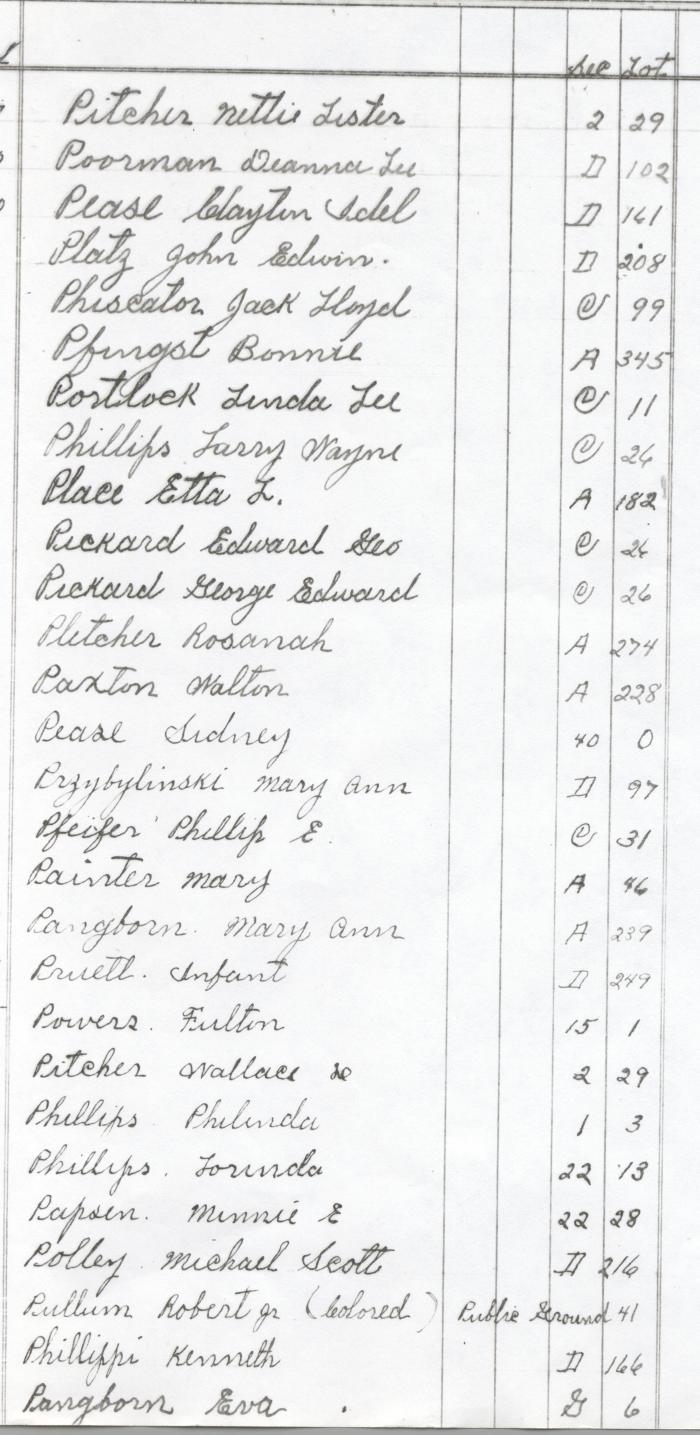 Sec Lot
Pitcher Nettie Lester 2 29
Poorman Deanna Lee D 102
Pease Clayton Odel D 161
Platz John Edwin. D 208
Phiscator Jack Lloyd C 99
Pfingst Bonnie A 345
Portlock Linda Lee C 11
Phillips Larry Wayne C 26
Place Etta L. A 182
Pickard Edward Geo C 26
Pickard George Edward C 26
Pletcher Rosanah A 274
Paxton Walton A 228
Pease Sidney 40 0
Przybylinski Mary Ann D 97
Pfeifer Phillip E. C 31
Painter Mary A 46
Pangborn. Mary Ann A 239
Pruett. Infant D 249
Powers. Fulton 15 1
Pitcher Wallace 2 29
Phillips Philinda 1 3
Phillips. Lorinda 22 13
Papsen. Minnie E 22 28
Polley Michael Scott D 216
Pullum Robert Jr (Colored) Public Ground 41
Phillippi Kenneth D 166
Pangborn Eva. G 6